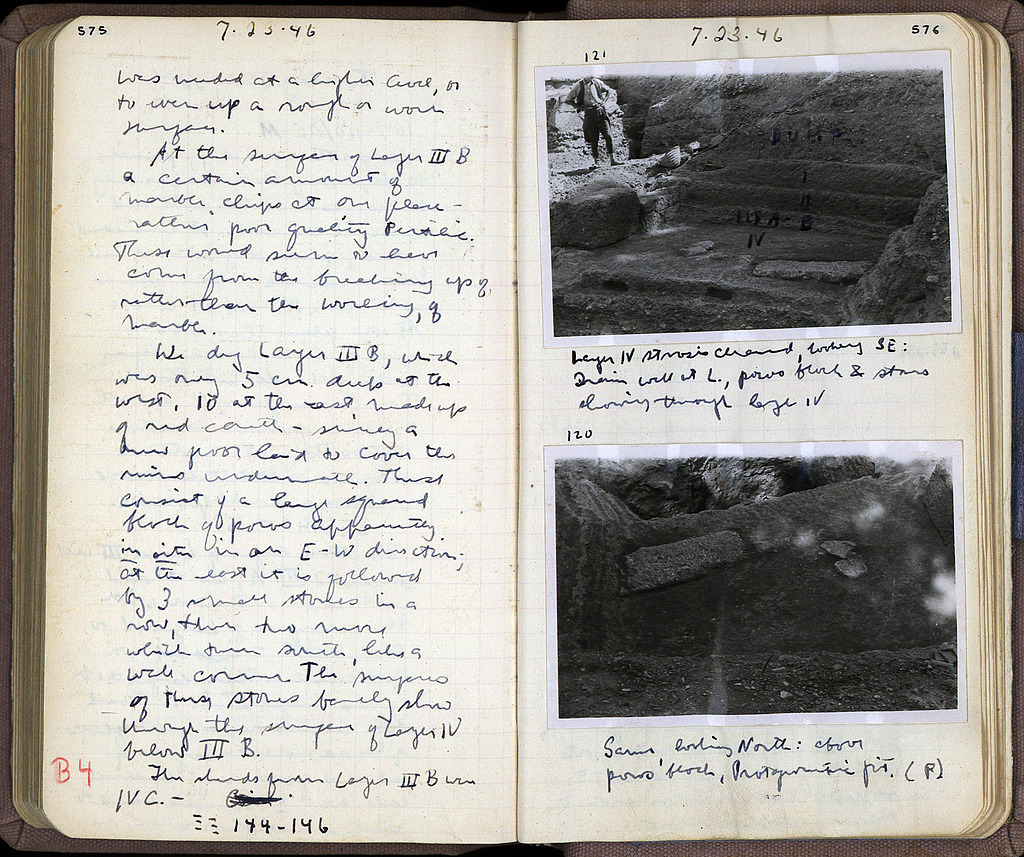 575
7.23.46
was needed at a higher level, or
to even up a rough or worn
surface.
At the surface of Layer III B
a certain amount of
marble chips at one place -
rather poor quality Pentelic.
These would seem to have
come from the breaking up of,
rather than the working, of
marble.
We dug Layer III B, which
was only 5 cm. deep at the
west, 10 at the east made up
of red earth -
new floor laid to cover the
ruins underneath. These
consist of a large squared
block of poros apparently
in situ in an E-W direction;
at the east it is followed
by 3 small stones in a
row, then two more
which turn south, like a
wall corner. The surfaces
of these stones barely show
through the surface of Layer IV
below III B.
B4
The sherds from Layer III B were
IV C. -
144-146
7.23.46
576
121
DUMP
I
II
III A-B
IV
Layer IV strosis cleaned, looking SE:
Drain wall at L., poros block & stones
showing through layer IV
120
Same, looking North: above
poros block, Protogeometric pit. (P)